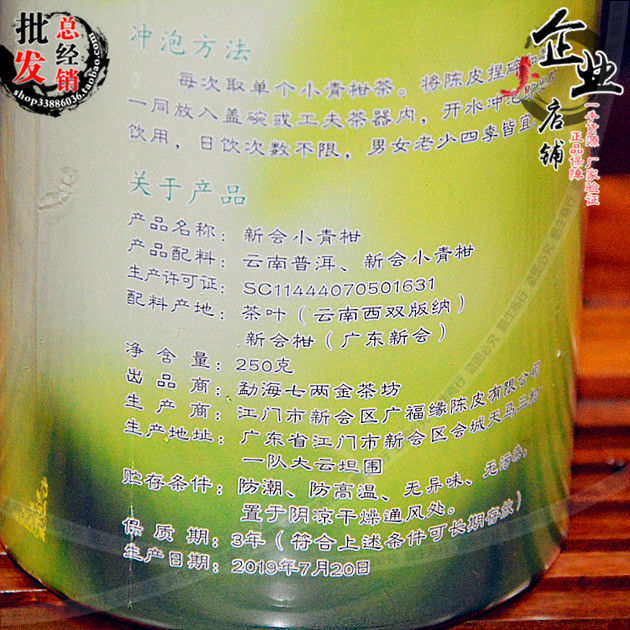 批发
总经销
shop33886036.taobao.com
企业
店铺
一手货源 厂家验证
正品保障
冲泡方法
每次取单个小青柑茶。将陈皮捏碎
一同放入盖碗或工夫茶器内，开水冲泡
饮用，日饮次数不限，男女老少四季皆宜
关于产品
产品名称：新会小青柑
产品配料：云南普洱、新会小青柑
生产许可证：SC11444070501631
配料产地：茶叶（云南西双版纳）
新会柑（广东新会）
净含量：250克
出品商：勐海七两金茶坊
生产商：江门市新会区广福缘陈皮有限公司
生产地址：广东省江门市新会区会城天马三村
一队大云坦围
贮存条件：防潮、防高温、无异味、无污染，
置于阴凉干燥通风处。
保质期：3年（符合上述条件可长期存放）
生产日期：2019年7月20日